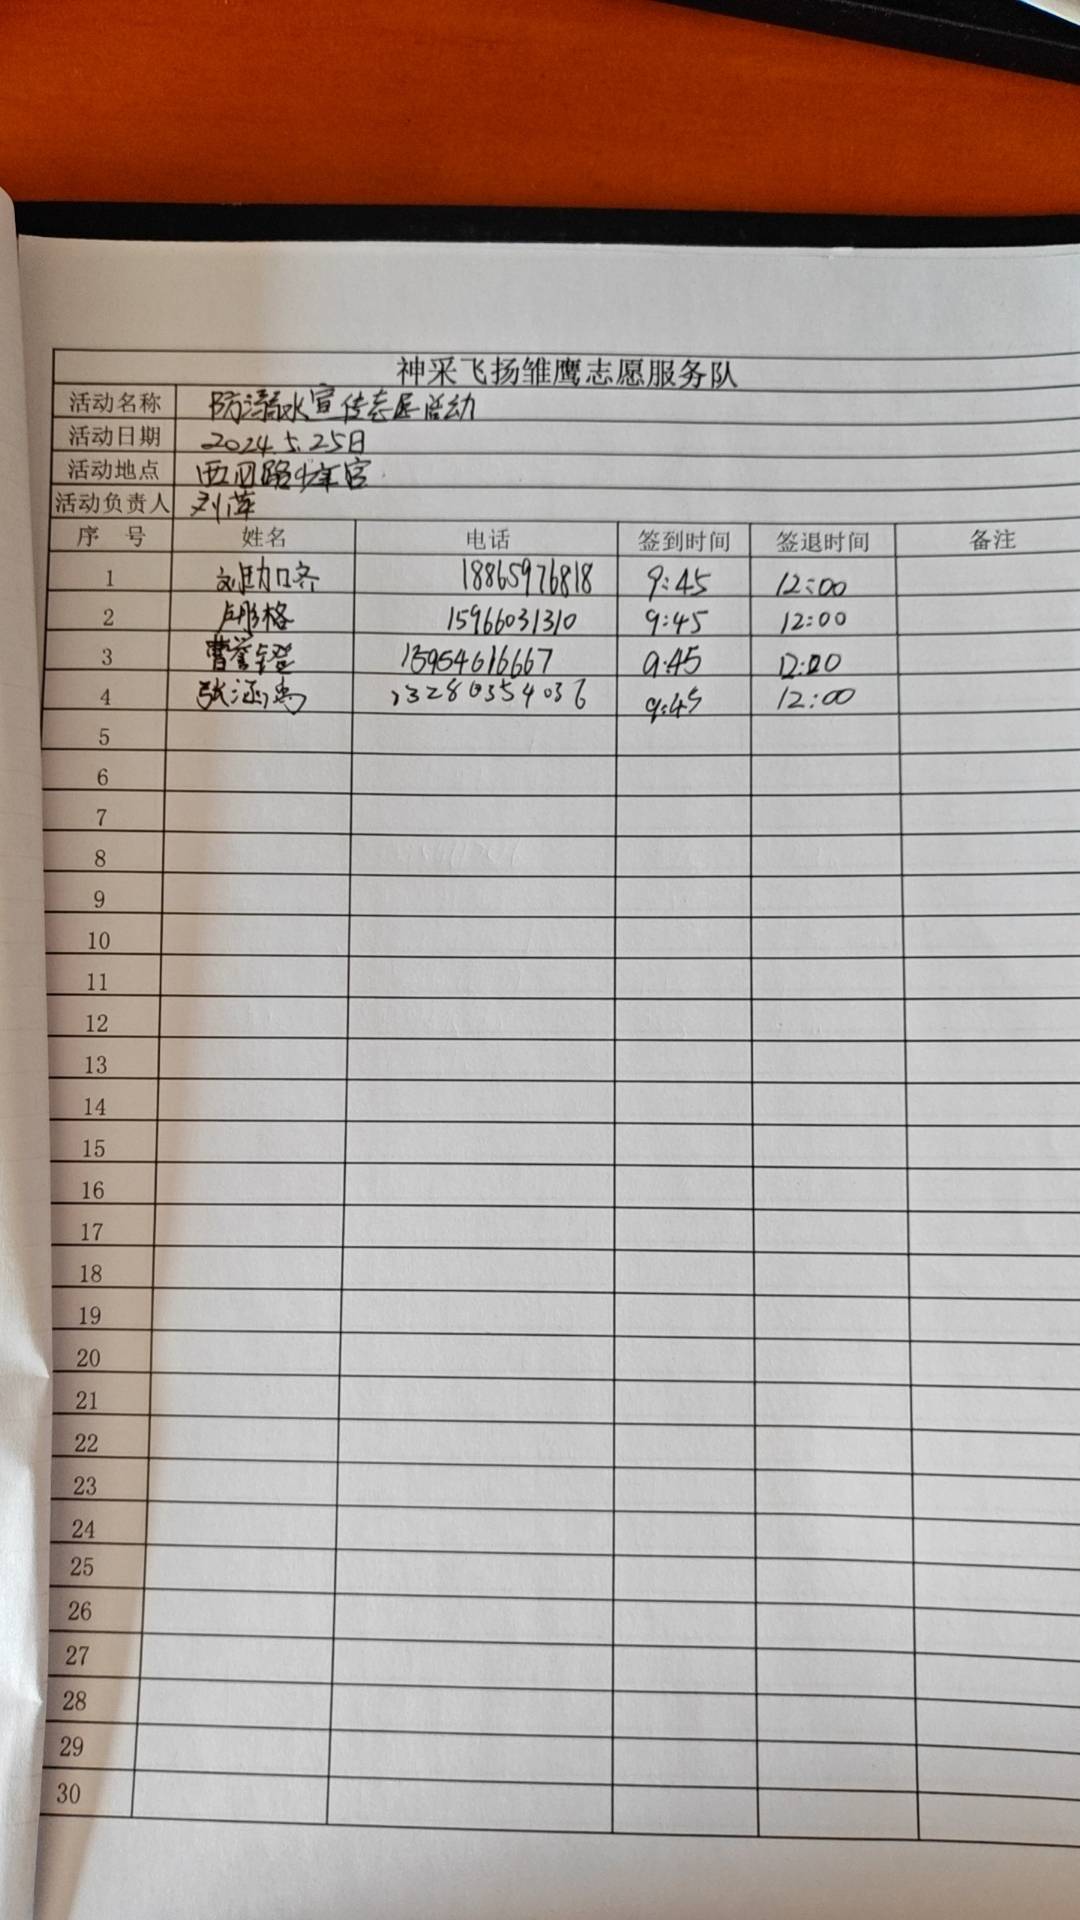 神采飞扬雏鹰志愿服务队
活动名称 防溺水宣传志愿活动
活动日期 2024.5.25日
活动地点 西四路少年宫
活动负责人 刘萍
序 号 姓名 电话 签到时间 签退时间 备注
1 18865976818 9:45 12:00
2 卢彤格 15966031310 9:45 12:00
3 曹誉镫 15954616667 9:45 12:00
4 张涵禹 13280354036 9:45 12:00
5
6
7
8
9
10
11
12
13
14
15
16
17
18
19
20
21
22
23
24
25
26
27
28
29
30